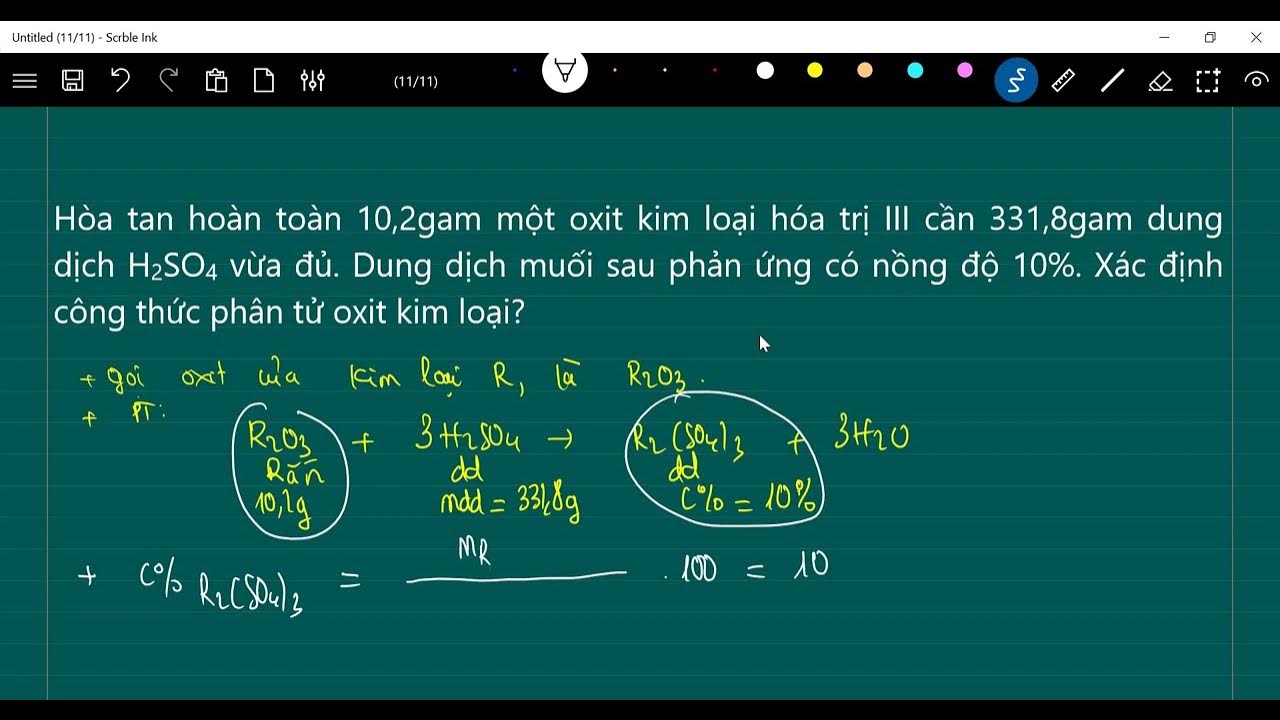 Untitled (11/11) - Scrble Ink
(11/11)
Hòa tan hoàn toàn 10,2gam một oxit kim loại hóa trị III cần 331,8gam dung
dịch H₂SO₄ vừa đủ. Dung dịch muối sau phản ứng có nồng độ 10%. Xác định
công thức phân tử oxit kim loại?
+ gọi oxit của kim loại R, là R₂O₃.
+ PT:
R₂O₃ + 3H₂SO₄ → R₂(SO₄)₃ + 3H₂O
Rắn dd dd
10,2g mdd = 331,8g C% = 10%
+ C% R₂(SO₄)₃ = MR / . 100 = 10